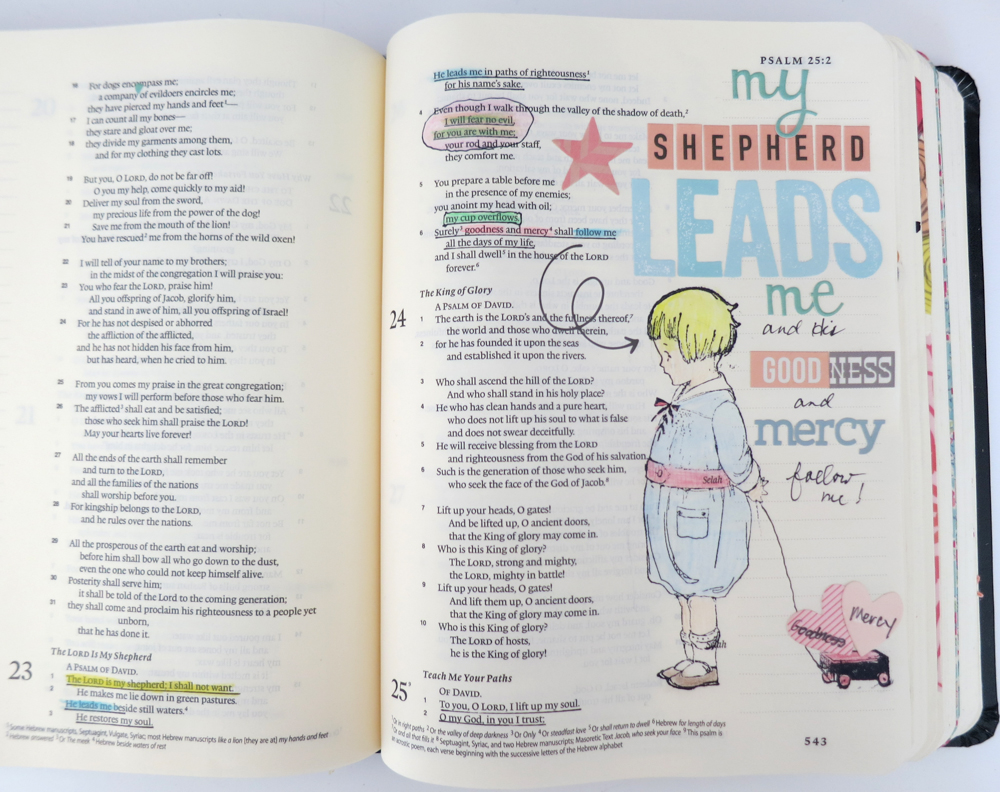 16 For dogs encompass me;
a company of evildoers encircles me;
they have pierced my hands and feet¹—
17 I can count all my bones—
they stare and gloat over me;
18 they divide my garments among them,
and for my clothing they cast lots.
19 But you, O LORD, do not be far off!
O you my help, come quickly to my aid!
20 Deliver my soul from the sword,
my precious life from the power of the dog!
21 Save me from the mouth of the lion!
You have rescued² me from the horns of the wild oxen!
22 I will tell of your name to my brothers;
in the midst of the congregation I will praise you:
23 You who fear the LORD, praise him!
All you offspring of Jacob, glorify him,
and stand in awe of him, all you offspring of Israel!
24 For he has not despised or abhorred
the affliction of the afflicted,
and he has not hidden his face from him,
but has heard, when he cried to him.
25 From you comes my praise in the great congregation;
my vows I will perform before those who fear him.
26 The afflicted³ shall eat and be satisfied;
those who seek him shall praise the LORD!
May your hearts live forever!
27 All the ends of the earth shall remember
and turn to the LORD,
and all the families of the nations
shall worship before you.
28 For kingship belongs to the LORD,
and he rules over the nations.
29 All the prosperous of the earth eat and worship;
before him shall bow all who go down to the dust,
even the one who could not keep himself alive.
30 Posterity shall serve him;
it shall be told of the Lord to the coming generation;
31 they shall come and proclaim his righteousness to a people yet
unborn,
that he has done it.
The LORD Is My Shepherd
23 A PSALM OF DAVID.
1 The LORD is my shepherd; I shall not want.
2 He makes me lie down in green pastures.
He leads me beside still waters.⁴
3 He restores my soul.
¹ Some Hebrew manuscripts, Septuagint, Vulgate, Syriac; most Hebrew manuscripts like a lion [they are at] my hands and feet
² Hebrew answered ³ Or The meek ⁴ Hebrew beside waters of rest
PSALM 25:2
He leads me in paths of righteousness¹
for his name's sake.
4 Even though I walk through the valley of the shadow of death,²
I will fear no evil,
for you are with me;
your rod and your staff,
they comfort me.
5 You prepare a table before me
in the presence of my enemies;
you anoint my head with oil;
my cup overflows.
6 Surely³ goodness and mercy⁴ shall follow me
all the days of my life,
and I shall dwell⁵ in the house of the LORD
forever.⁶
The King of Glory
24 A PSALM OF DAVID.
1 The earth is the LORD's and the fullness thereof,⁷
the world and those who dwell therein,
2 for he has founded it upon the seas
and established it upon the rivers.
3 Who shall ascend the hill of the LORD?
And who shall stand in his holy place?
4 He who has clean hands and a pure heart,
who does not lift up his soul to what is false
and does not swear deceitfully.
5 He will receive blessing from the LORD
and righteousness from the God of his salvation.
6 Such is the generation of those who seek him,
who seek the face of the God of Jacob.⁸
7 Lift up your heads, O gates!
And be lifted up, O ancient doors,
that the King of glory may come in.
8 Who is this King of glory?
The LORD, strong and mighty,
the LORD, mighty in battle!
9 Lift up your heads, O gates!
And lift them up, O ancient doors,
that the King of glory may come in.
10 Who is this King of glory?
The LORD of hosts,
he is the King of glory!
Teach Me Your Paths
25⁹ OF DAVID.
1 To you, O LORD, I lift up my soul.
2 O my God, in you I trust;
¹ Or in right paths ² Or the valley of deep darkness ³ Or Only ⁴ Or steadfast love ⁵ Or shall return to dwell ⁶ Hebrew for length of days
⁷ Or and all that fills it ⁸ Septuagint, Syriac, and two Hebrew manuscripts; Masoretic Text Jacob, who seek your face ⁹ This psalm is
an acrostic poem, each verse beginning with the successive letters of the Hebrew alphabet
my
SHEPHERD
LEADS
me
and His
GOODNESS
and
mercy
follow
me!
Selah
Mercy
Goodness
543